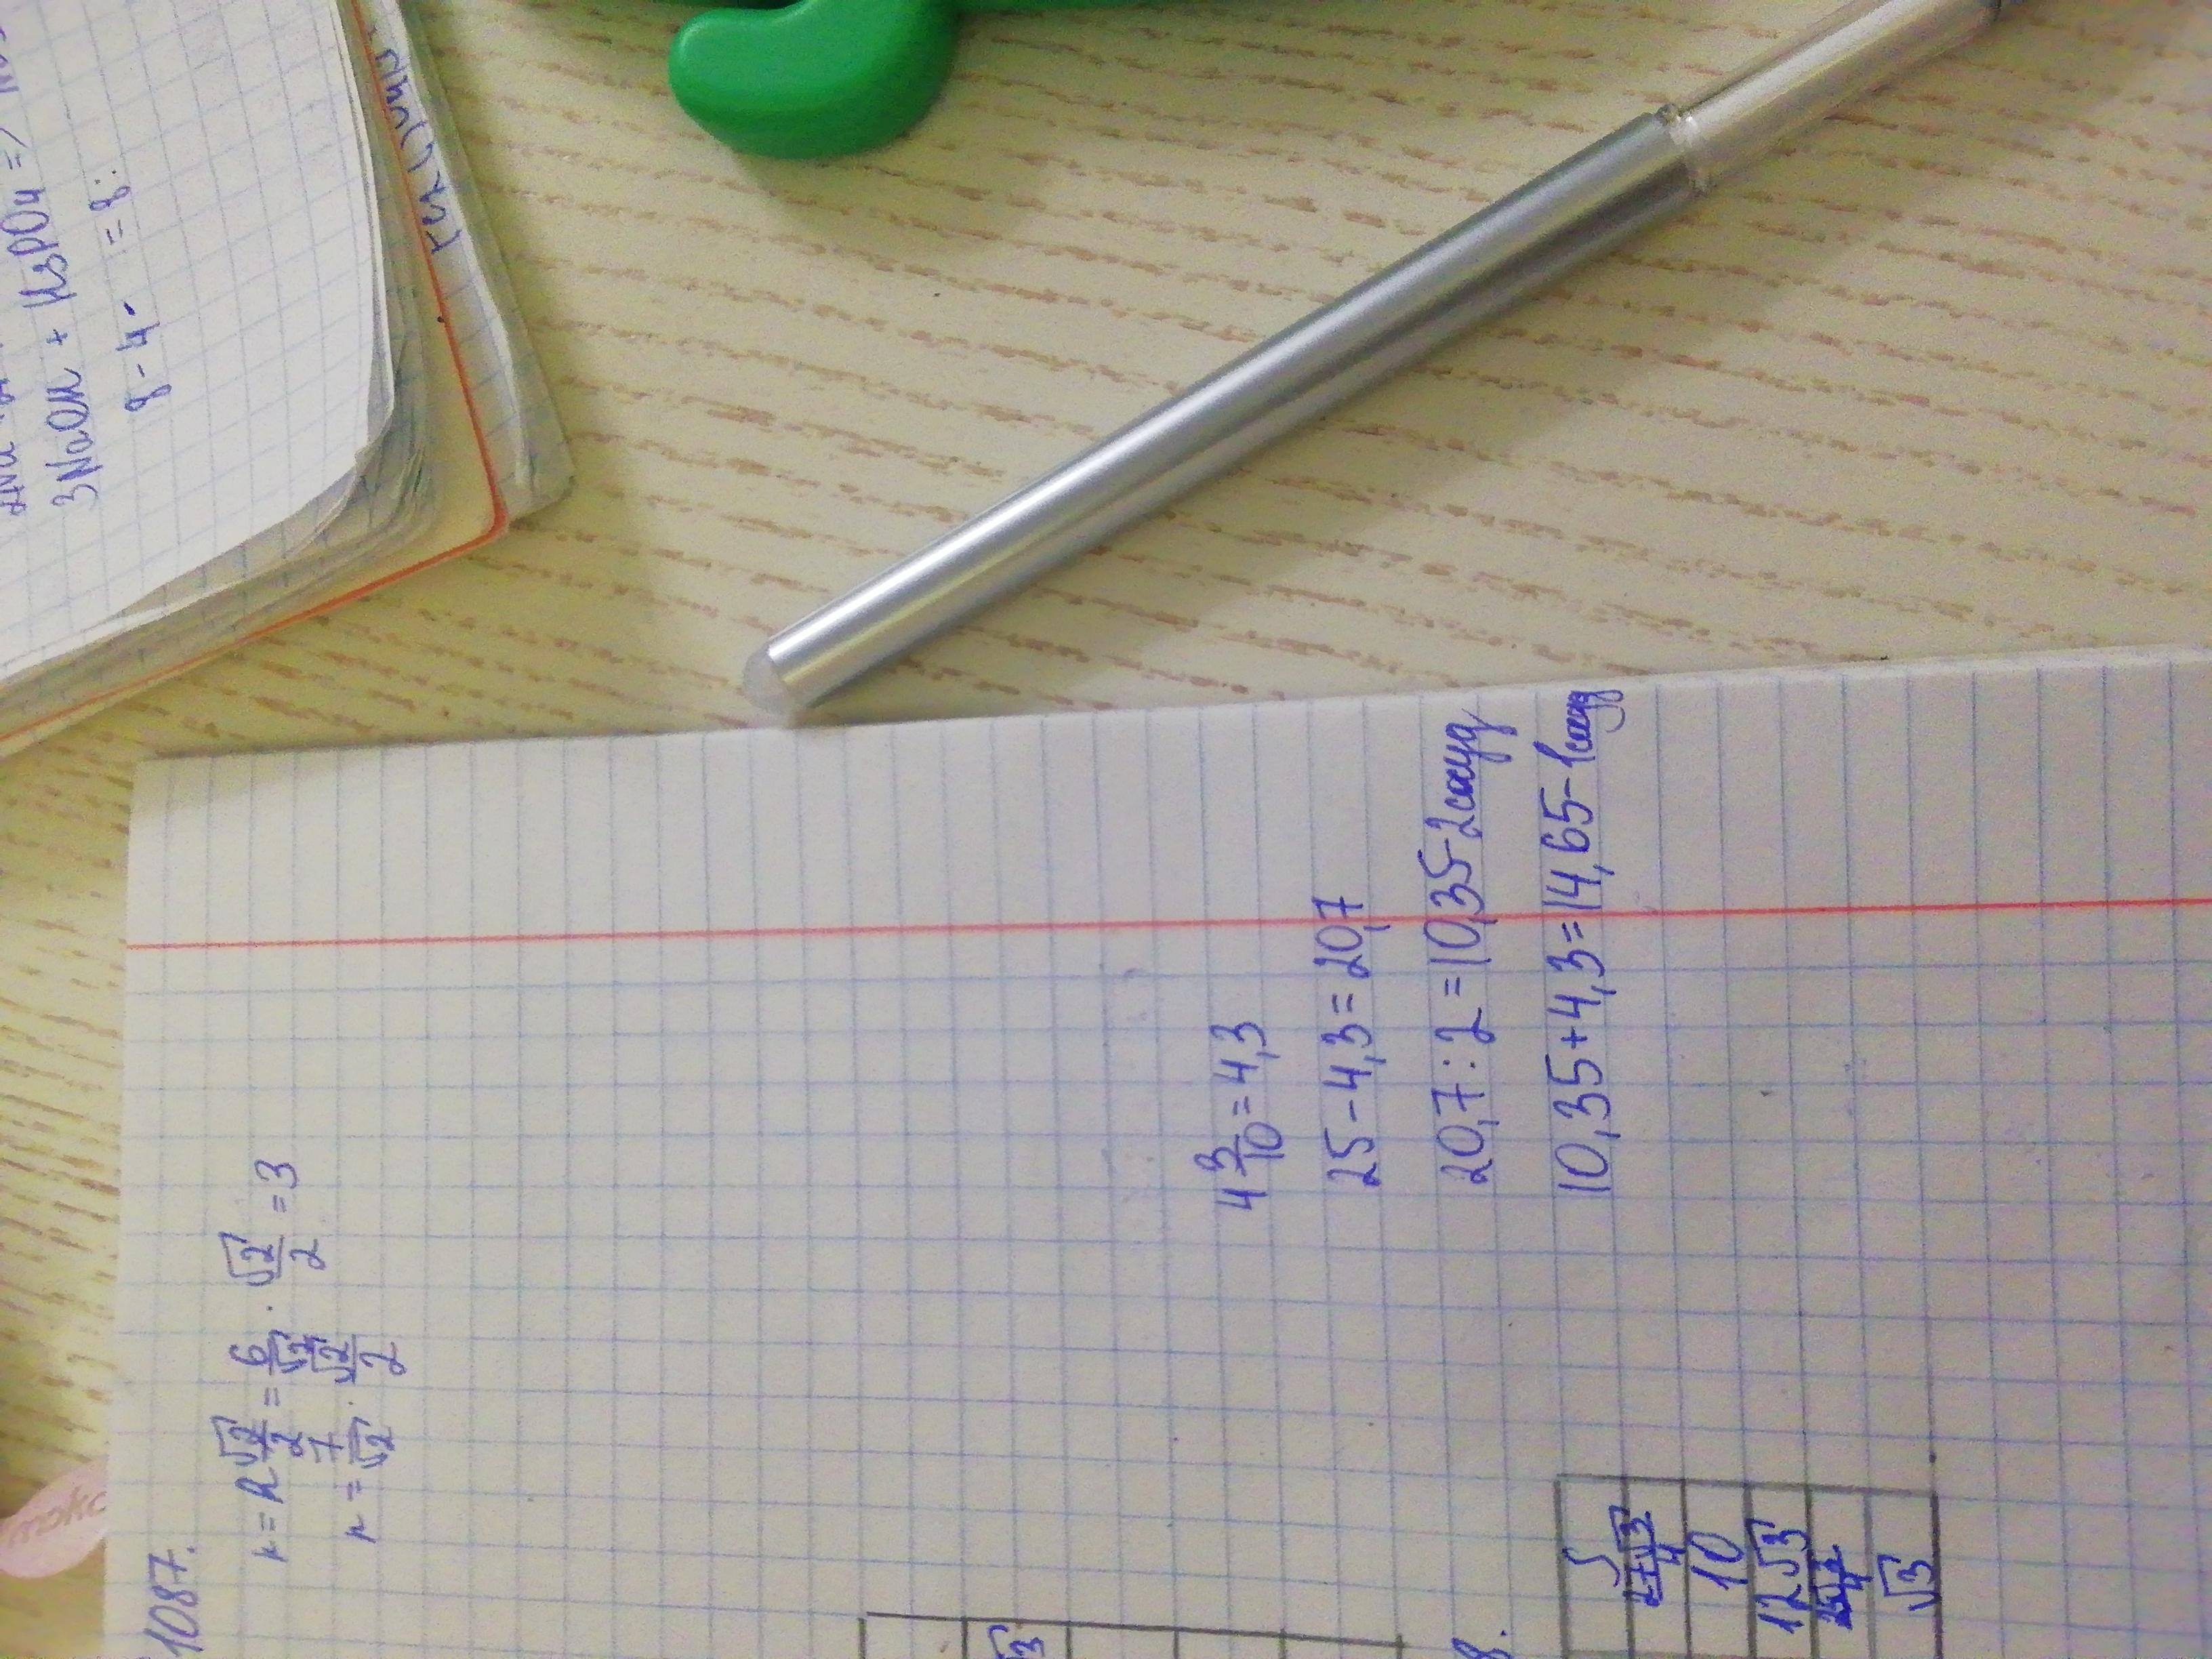 3NaOH + H₃PO₄ =>
8 - 4 · = 8 :
1087.
r = R √2/2 = 6/√2 · √2/2 = 3
r = 7/√2 · √2/2
4 3/10 = 4,3
25 - 4,3 = 20,7
20,7 : 2 = 10,35 - 2 сосуд
10,35 + 4,3 = 14,65 - 1 сосуд
√3
8.
S
10
12√3
√3